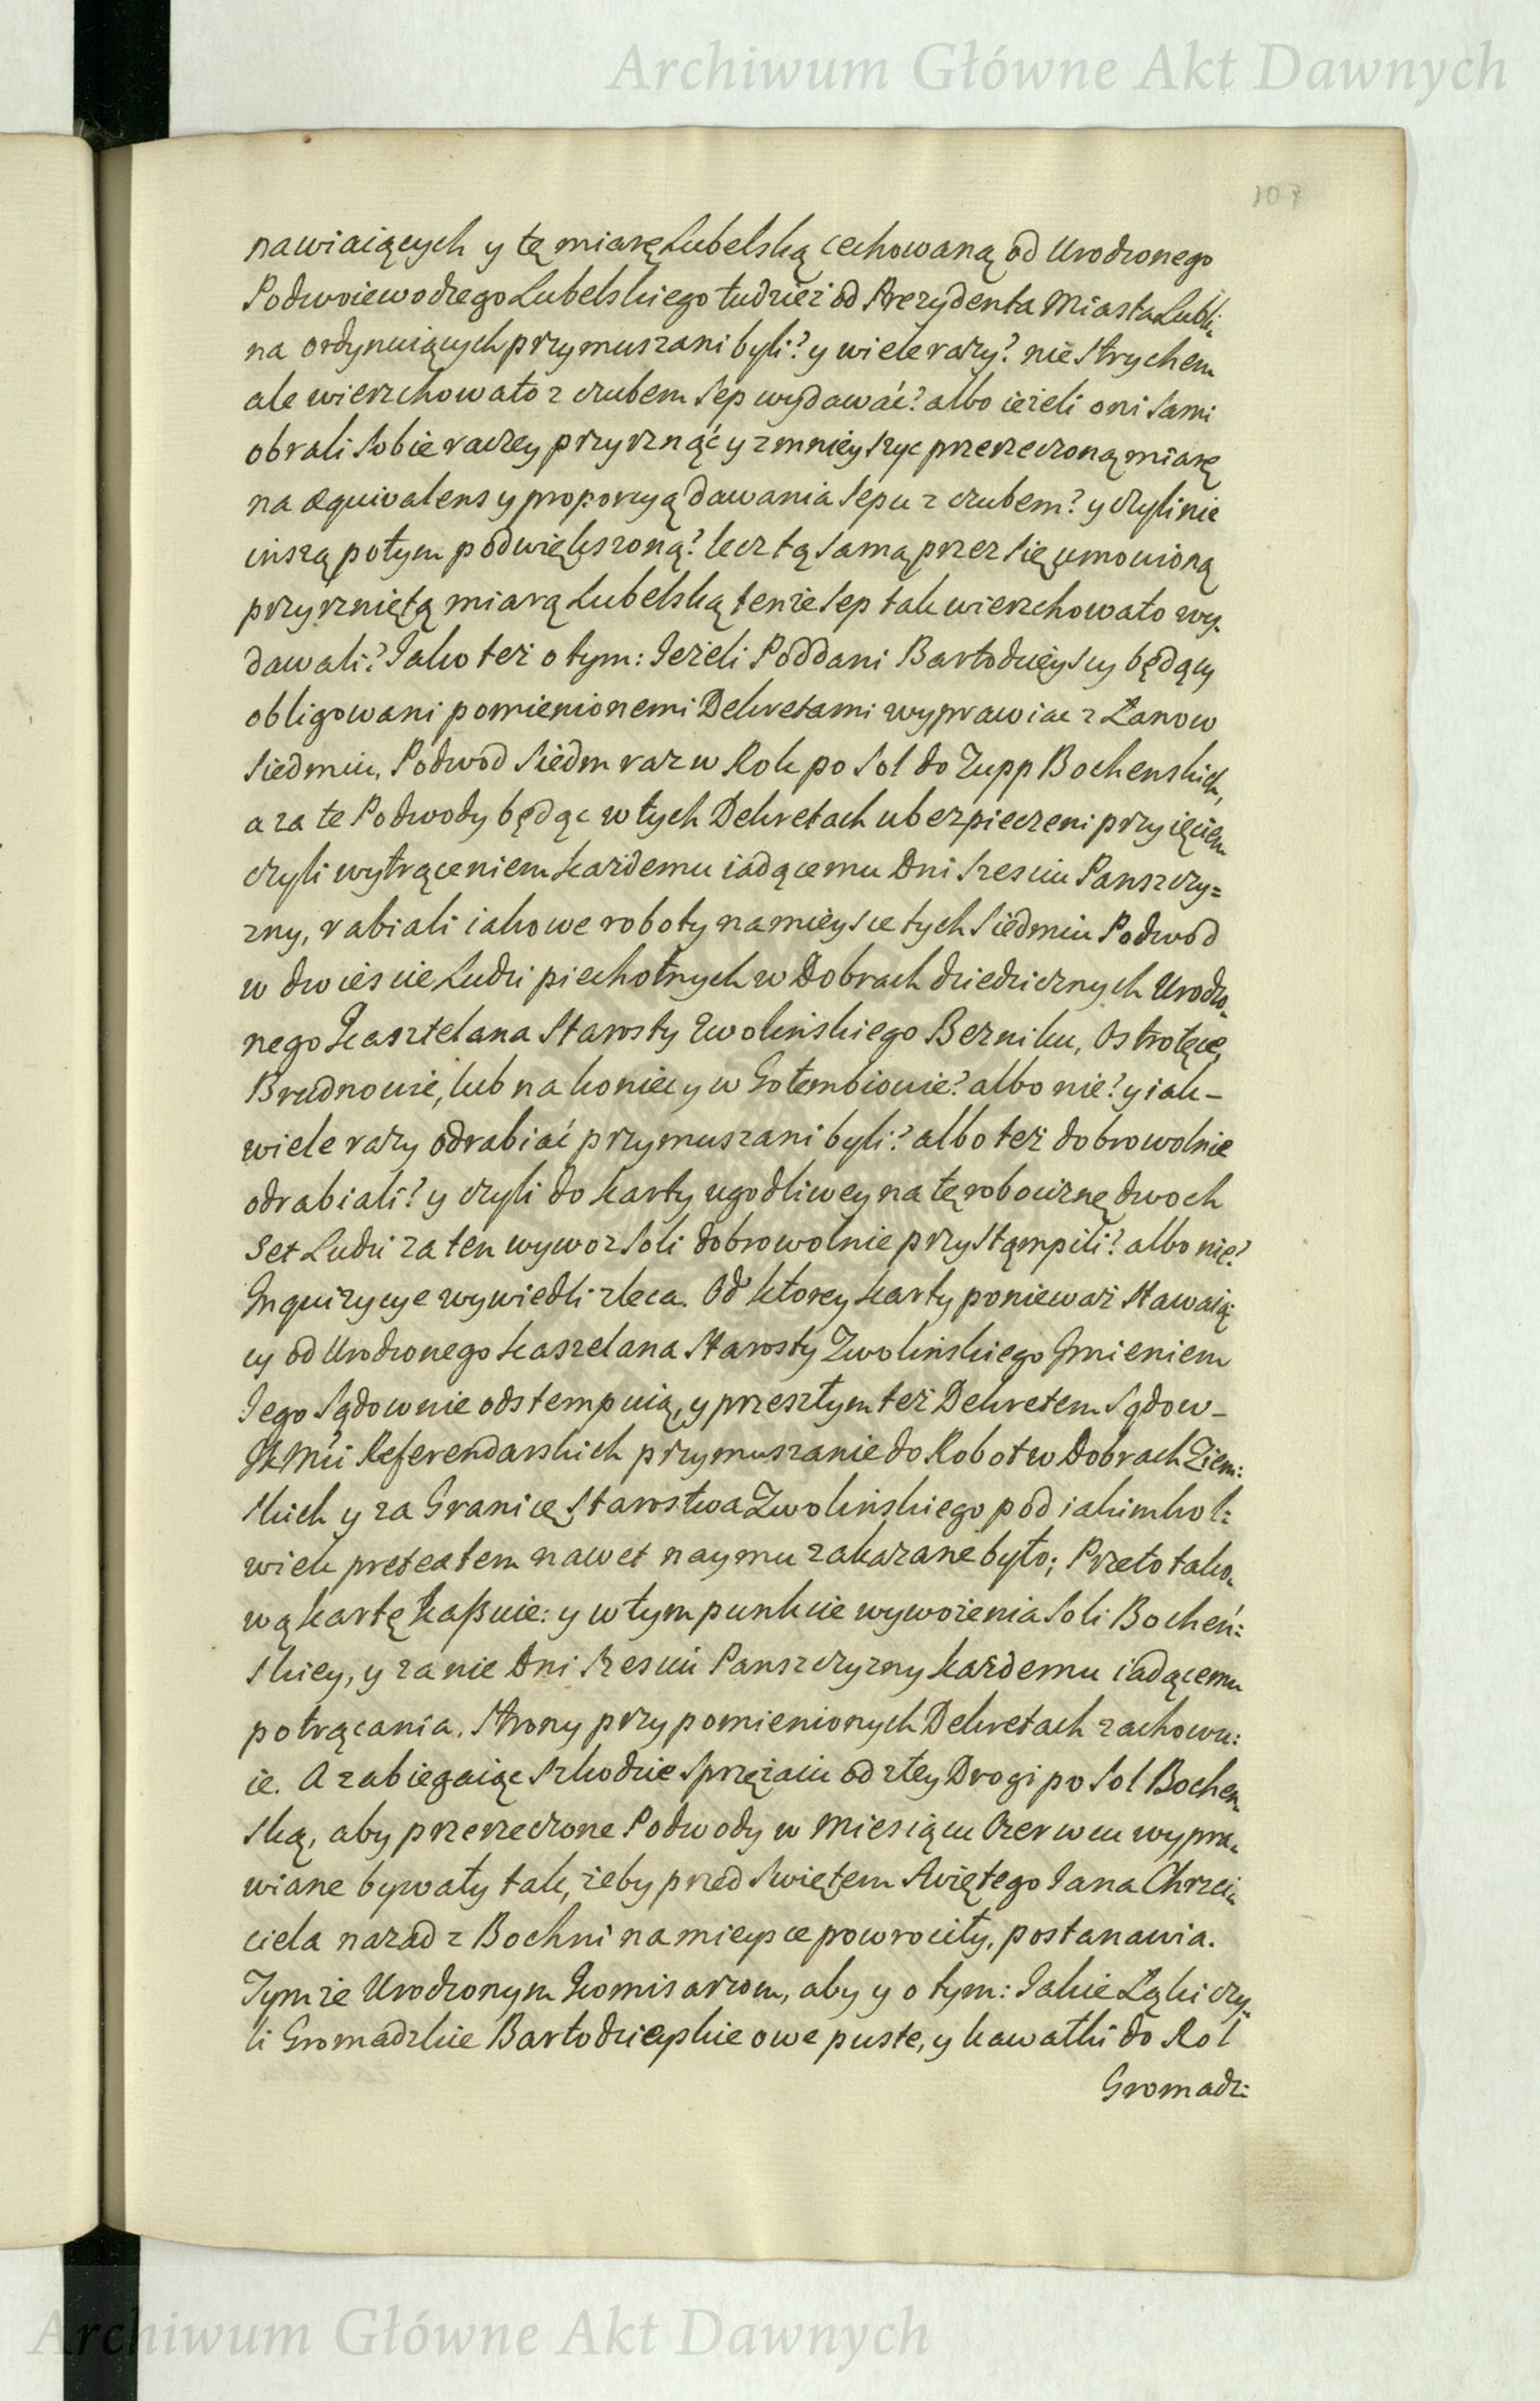 Archiwum Główne Akt Dawnych
107
nawiaiących y tę miarę Lubelską cechowaną od Urodzonego
Podwoiewodzego Lubelskiego tudzież od Prezydenta Miasta Lubli„
na ordynuiących przymuszani byli? y wiele razy? nie strychem
ale wierzchowato z czubem sep wydawać? albo ieżeli oni sami
obrali sobie raczey przyrznąć y zmnieyszyc przerzeczoną miarę
na equivalens y proporcyą dawania sepu z czubem? y czyli nie
inszą potym podwiększoną? lecz tą samą przez się umowioną
przyrzniętą miarą Lubelską tenże sep tak wierzchowato wy„
dawali? Jako też o tym: Jeżeli Poddani Bartodzieyscy będący
obligowani pomienionemi Dekretami wyprawiac z Łanow
siedmiu, Podwod siedm raz w Rok po Sol do Zupp Bochenskich,
a za te Podwody będąc w tych Dekretach ubezpieczeni przyięciem
czyli wytrąceniem każdemu iadącemu Dni szesciu Panszczy=
zny, rabiali iakowe roboty na mieysce tych siedmiu Podwod
w dwiescie Ludzi piechotnych w Dobrach dziedzicznych Urodzo„
nego Kasztelana Starosty Zwolińskiego Berniku, Ostrołęce,
Brudnowie, lub na koniec y w Gołembiowie? albo nie? y iak-
wiele razy odrabiać przymuszani byli? albo też dobrowolnie
odrabiali? y czyli do karty ugodliwey na tę robociznę dwoch
set Ludzi za ten wywoz soli dobrowolnie przystąmpili? albo nie?
Inquizycye wywiedli zleca. Od ktorey karty ponieważ stawaią:
cy od Urodzonego Kasztelana Starosty Zwolińskiego Imieniem
Jego sądownie odstempuią, y przeszłym też Dekretem Sądow-
JKMci Referendarskich przymuszanie do Robot w Dobrach Ziem:
skich y za Granicę Starostwa Zwolińskiego pod iakimkol:
wiek pretextem nawet naymu zakazane było; Przeto tako„
wą kartę kaßuie: y w tym punkcie wywożenia Soli Bocheń:
skiey, y za nie Dni szesciu Panszczyzny każdemu iadącemu
potrącania. Strony przy pomienionych Dekretach zachowu:
ie. A zabiegaiąc szkodzie sprzężaiu od złey Drogi po Sol Bochen„
ską, aby przerzeczone Podwody w Miesiącu Czerwcu wypra„
wiane bywały tak, żeby przed Swiętem Swiętego Jana Chrzci„
ciela nazad z Bochni na mieysce powrociły, postanawia.
Tymże Urodzonym Komisarzom, aby y o tym: Jakie Łąki czy„
li Gromadzkie Bartodzieyskie owe puste, y kawałki do Rol
Gromadz:
Archiwum Główne Akt Dawnych